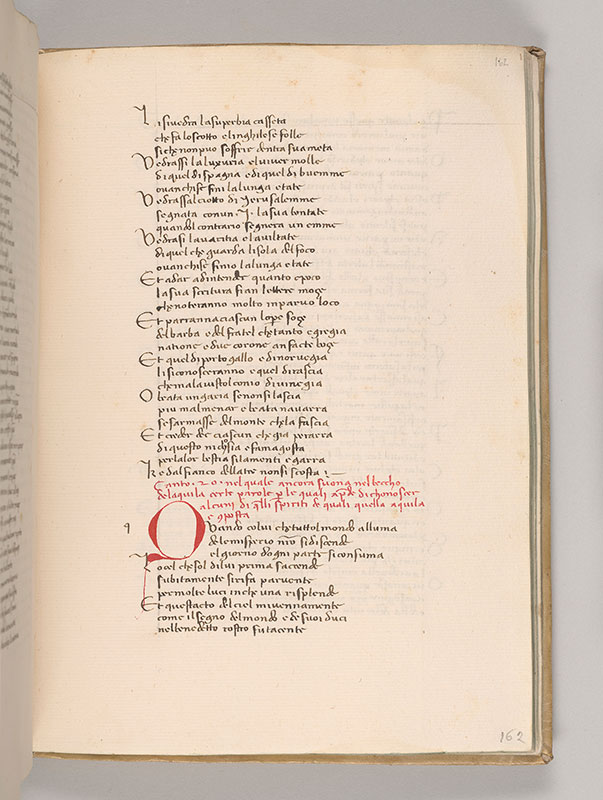 162
Li si vedra la superbia casseta
che fa lo scotto e linghilese folle
si che non puo soffrir dentra sua meta
Vedrassi la luxuria el viver molle
di quel di spagna e di quel di buemme
Vedrassal ciotto di Jerusalemme
segnata con un .I. la sua bontate
quandol contrario segnera un emme
Vedrasi lavaritia e laviltate
di quel che guarda lisola del foco
ovanchise finio la lunga etate
Et a dar ad intender quanto e poco
la sua scritura fian lettere moze
che noteranno molto in parvo loco
Et parranno a ciascun lopere soze
del barba e del fratel che tanto egregia
natione e due corone an facte boze
Et quel di portogallo e di norvegia
li si conosceranno e quel di rascia
che mala visto l conio di vinegia
O beata ungaria se non si lascia
piu malmenare e beata navarra
se sarmasse del monte che la fascia
Et creder dee ciascun che gia per arra
di questo nichsia e famagosta
per la lor bestia si lamenti e garra
Ke dal fianco dellatre non si scosta :
Canto .20. nel quale ancora suona nel beccho
delaquila certe parole per le quali apre di chonoscer
alcuni di quelli spiriti de quali quella aquila
e conposta
q
QVando colui che tutto l mondo alluma
delemisperio nostro si discende
el giorno dogni parte si consuma
Lo cel che sol di lui prima saccende
subitamente si rifa parvente
per molte luci in che una risplende
Et questacto del ciel mi venne a mente
come il segno del mondo e de suoi duci
nel benedetto rostro fu tacente
162